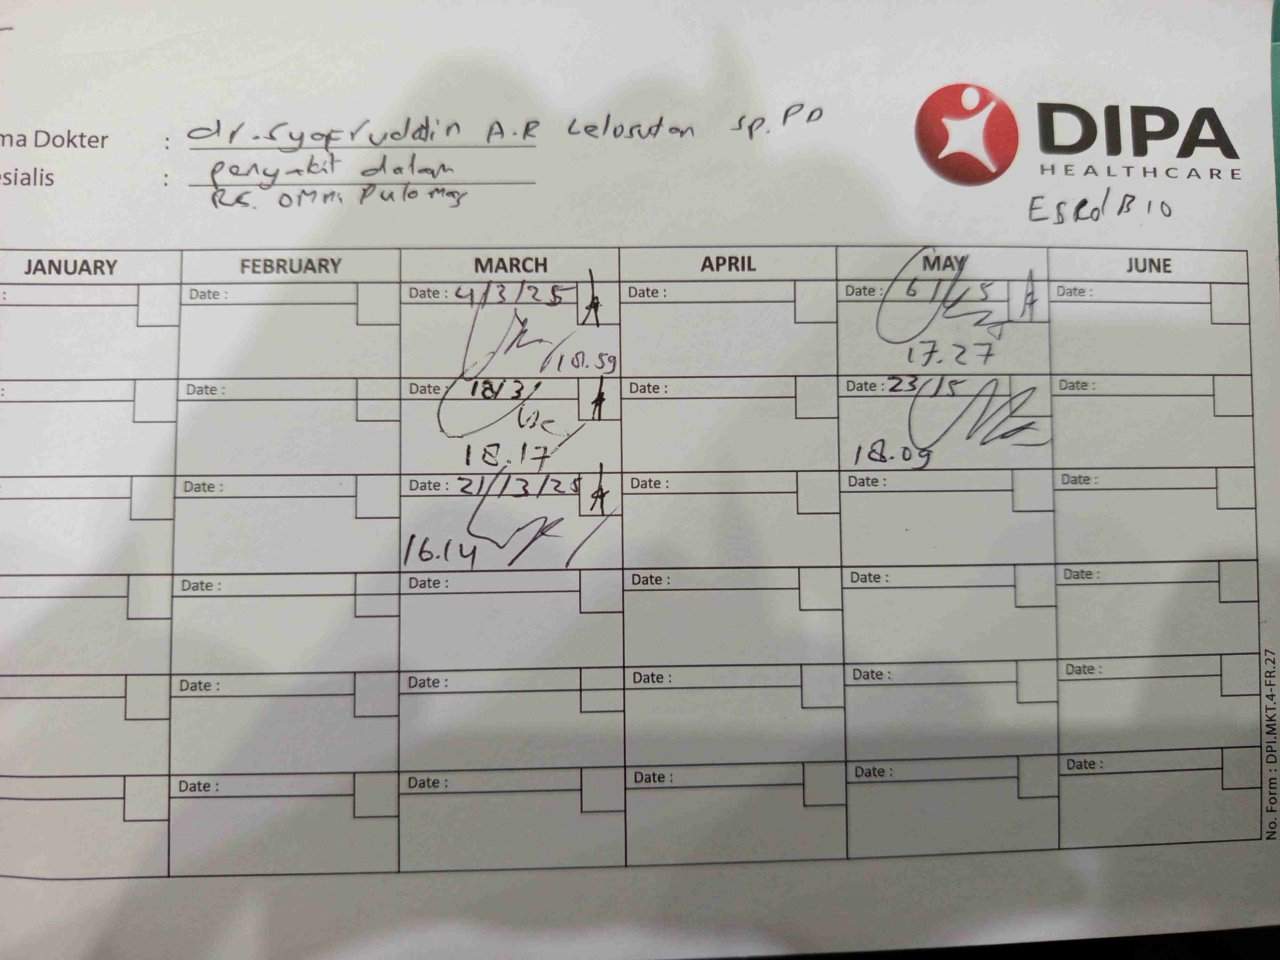 ma Dokter : dr. Syafruddin A.R Lelosutan Sp.PD
esialis : penyakit dalam
RS. OMNI Pulomas
DIPA
HEALTHCARE
JANUARY FEBRUARY MARCH APRIL MAY JUNE
: Date : Date : 4/3/25 Date : Date : 6/5 Date :
18.59 17.27
: Date : Date : 18/3/ Date : Date : 23/5 Date :
18.17 18.09
Date : Date : 21/3/25 Date : Date : Date :
16.14
Date : Date : Date : Date : Date :
Date : Date : Date : Date : Date :
Date : Date : Date : Date : Date :
No. Form : DPI.MKT.4-FR.27